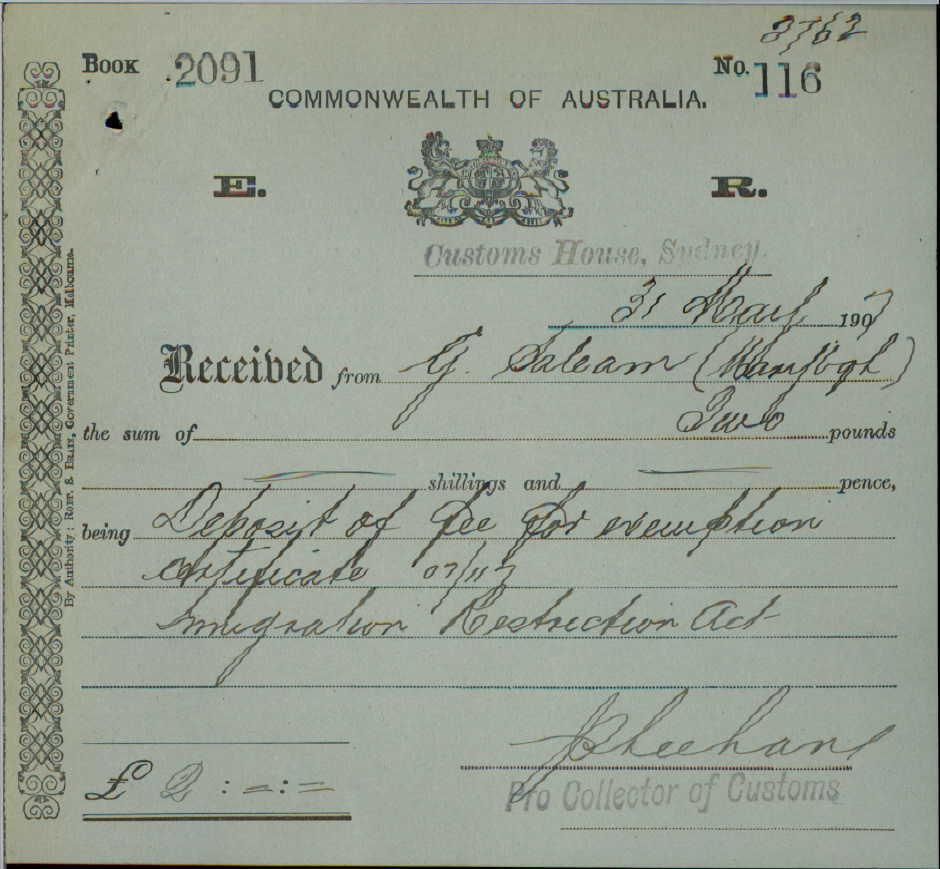 3762
BOOK 2091 No. 116
COMMONWEALTH OF AUSTRALIA.
E. R.
Customs House, Sydney.
31 May 1907
Received from G. Saleam
the sum of Two pounds
shillings and pence,
being Deposit of fee for exemption
certificate 07/117
Immigration Restriction Act
£ 2 : = : =
Pro Collector of Customs
By Authority: ROBT. S. BRAIN, Government Printer, Melbourne.